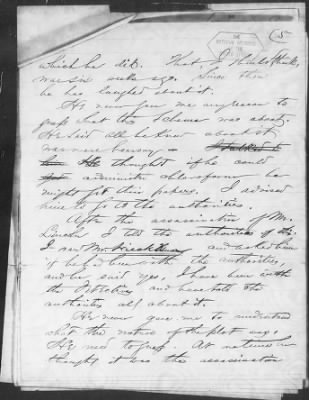 5
which he did. That, I should think,
was six weeks ago. Since then
he has laughed about it.
He never gave me any reason to
grasp what the scheme was about.
He said all he knew about it
was mere hearsay
thought if he could
administer chloroform he
might get their papers. I advised
him to go to the authorities.
After the assassination of Mr.
Lincoln I told the authorities of it.
I saw Mr. and asked him
if he had been with the authorities,
and he said yes, I have been with
the and have told the
authorities all about it.
He never gave me to understand
what the nature of the plot was.
He used to guess. At no time he
thought it was the assassination